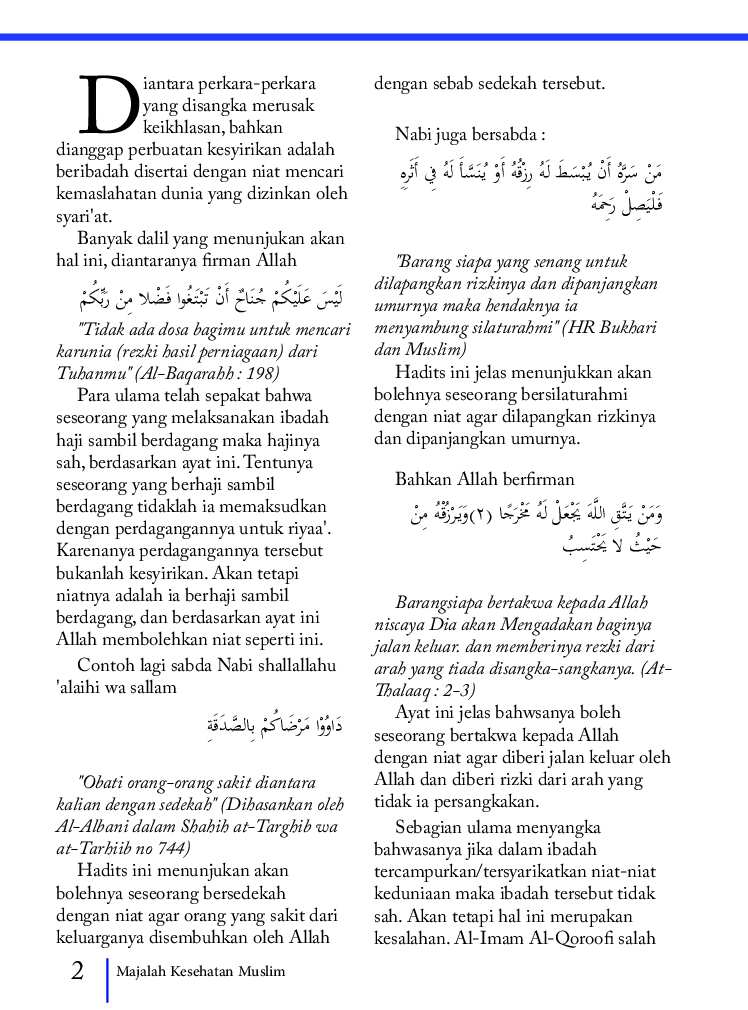 Diantara perkara-perkara
yang disangka merusak
keikhlasan, bahkan
dianggap perbuatan kesyirikan adalah
beribadah disertai dengan niat mencari
kemaslahatan dunia yang dizinkan oleh
syari'at.
Banyak dalil yang menunjukan akan
hal ini, diantaranya firman Allah
لَيْسَ عَلَيْكُمْ جُنَاحٌ أَنْ تَبْتَغُوا فَضْلا مِنْ رَبِّكُمْ
"Tidak ada dosa bagimu untuk mencari
karunia (rezki hasil perniagaan) dari
Tuhanmu" (Al-Baqarahh : 198)
Para ulama telah sepakat bahwa
seseorang yang melaksanakan ibadah
haji sambil berdagang maka hajinya
sah, berdasarkan ayat ini. Tentunya
seseorang yang berhaji sambil
berdagang tidaklah ia memaksudkan
dengan perdagangannya untuk riyaa'.
Karenanya perdagangannya tersebut
bukanlah kesyirikan. Akan tetapi
niatnya adalah ia berhaji sambil
berdagang, dan berdasarkan ayat ini
Allah membolehkan niat seperti ini.
Contoh lagi sabda Nabi shallallahu
'alaihi wa sallam
دَاوُوْا مَرْضَاكُمْ بِالصَّدَقَةِ
"Obati orang-orang sakit diantara
kalian dengan sedekah" (Dihasankan oleh
Al-Albani dalam Shahih at-Targhib wa
at-Tarhiib no 744)
Hadits ini menunjukan akan
bolehnya seseorang bersedekah
dengan niat agar orang yang sakit dari
keluarganya disembuhkan oleh Allah
dengan sebab sedekah tersebut.
Nabi juga bersabda :
مَنْ سَرَّهُ أَنْ يُبْسَطَ لَهُ رِزْقُهُ أَوْ يُنَسَّأَ لَهُ فِي أَثَرِهِ
فَلْيَصِلْ رَحِمَهُ
"Barang siapa yang senang untuk
dilapangkan rizkinya dan dipanjangkan
umurnya maka hendaknya ia
menyambung silaturahmi" (HR Bukhari
dan Muslim)
Hadits ini jelas menunjukkan akan
bolehnya seseorang bersilaturahmi
dengan niat agar dilapangkan rizkinya
dan dipanjangkan umurnya.
Bahkan Allah berfirman
وَمَنْ يَتَّقِ اللَّهَ يَجْعَلْ لَهُ مَخْرَجًا (٢)وَيَرْزُقْهُ مِنْ
حَيْثُ لا يَحْتَسِبُ
Barangsiapa bertakwa kepada Allah
niscaya Dia akan Mengadakan baginya
jalan keluar. dan memberinya rezki dari
arah yang tiada disangka-sangkanya. (At-
Thalaaq : 2-3)
Ayat ini jelas bahwsanya boleh
seseorang bertakwa kepada Allah
dengan niat agar diberi jalan keluar oleh
Allah dan diberi rizki dari arah yang
tidak ia persangkakan.
Sebagian ulama menyangka
bahwasanya jika dalam ibadah
tercampurkan/tersyarikatkan niat-niat
keduniaan maka ibadah tersebut tidak
sah. Akan tetapi hal ini merupakan
kesalahan. Al-Imam Al-Qoroofi salah
2 Majalah Kesehatan Muslim